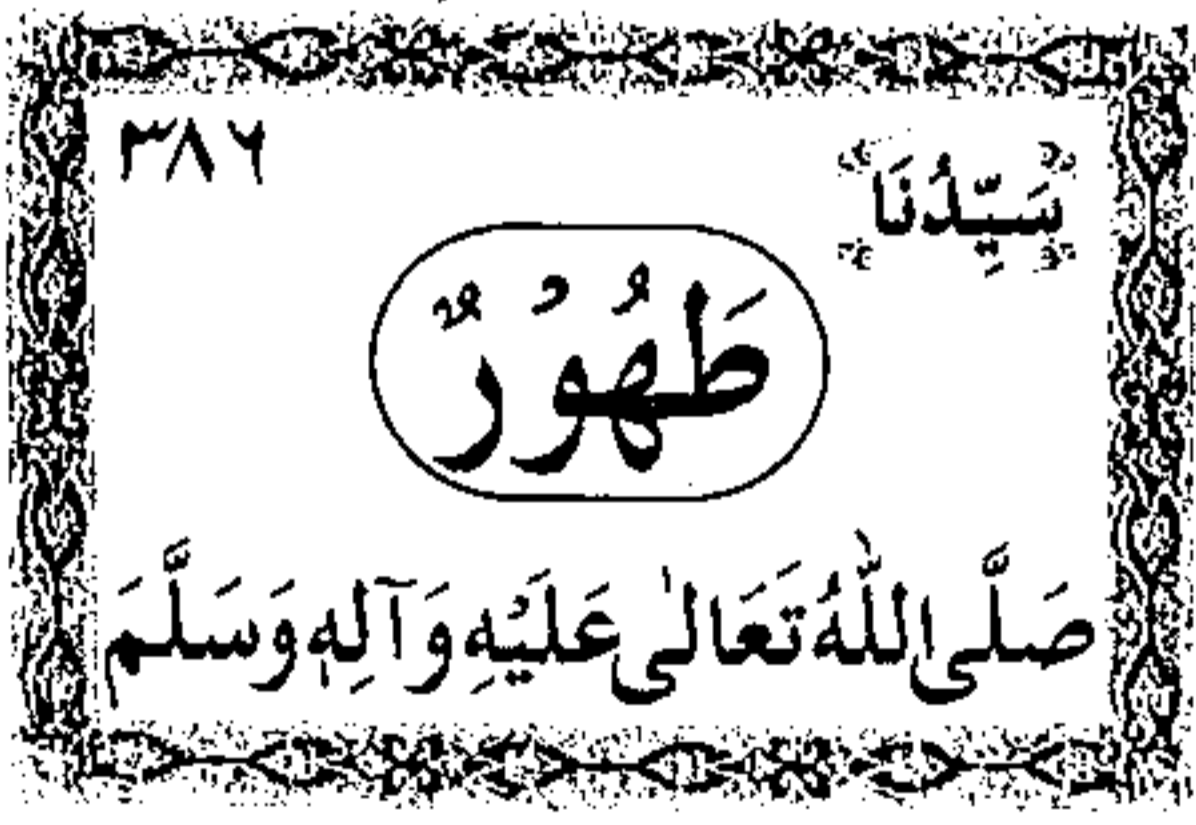 سَيِّدُنَا
٣٨٦
طَهُوْرٌ
صَلَّى اللّٰهُ تَعَالٰى عَلَيْهِ وَآلِهٖ وَسَلَّمَ